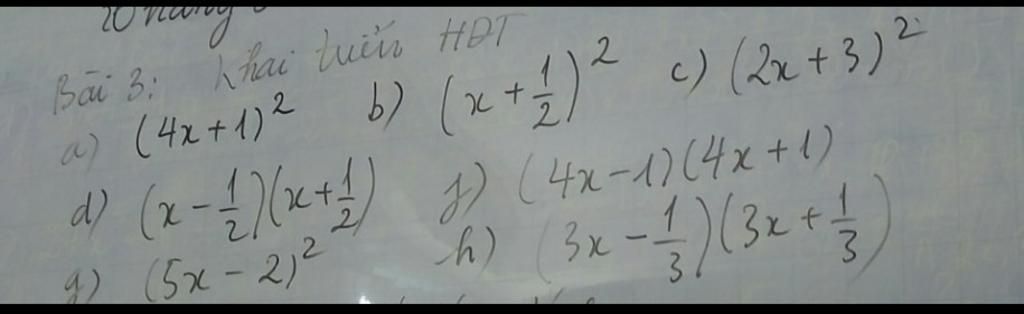 Bài 3: Khai triển HĐT
a) (4x+1)² b) (x+1/2)² c) (2x+3)²
d) (x-1/2)(x+1/2) f) (4x-1)(4x+1)
g) (5x-2)² h) (3x-1/3)(3x+1/3)